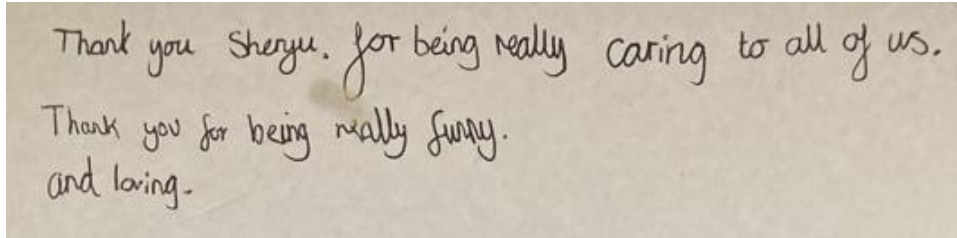 Thank you Sheryu. for being really caring to all of us.
Thank you for being really funny.
and loving.